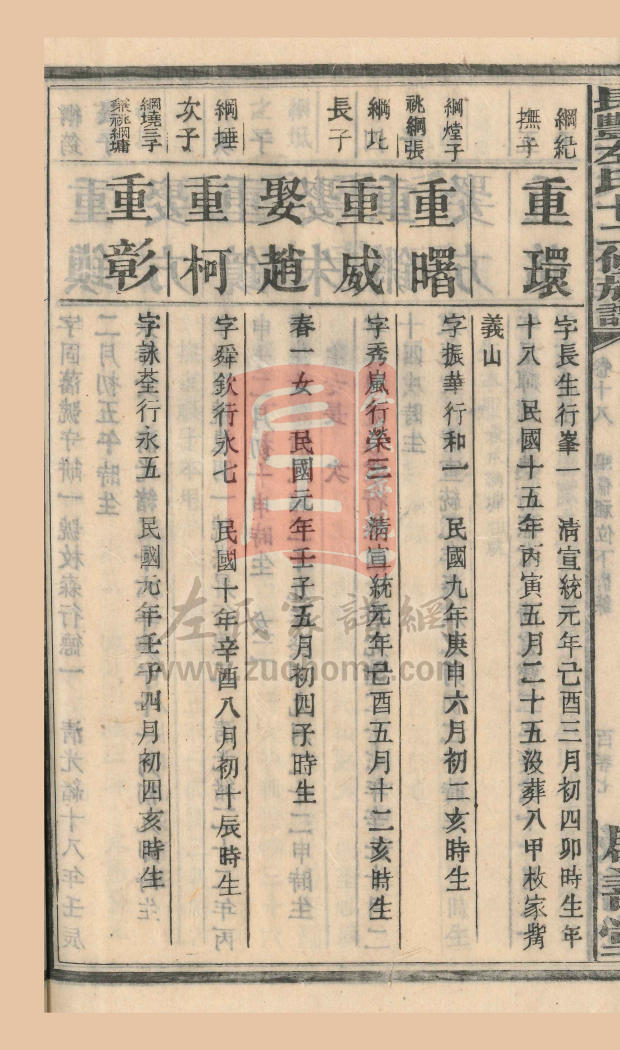 綱紀
撫子
重環
字長生行峯一　清宣統元年己酉三月初四卯時生年
十八　民國十五年丙寅五月二十五沒葬八甲枚家嘴
義山
綱煃子
祧綱張
重曙
字振華行和一　民國九年庚申六月初二亥時生
綱圠
長子
重威
字秀嵐行榮三　清宣統元年己酉五月十二亥時生
娶趙
春一女　民國元年壬子五月初四子時生
綱埵
次子
重柯
字舜欽行永七　民國十年辛酉八月初十辰時生
綱墝三子
兼祧綱墉
重彰
字詠荃行永五　民國元年壬子四月初四亥時生
左氏家譜網
www.zuohome.com